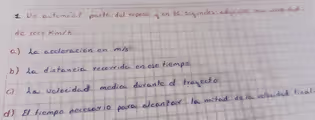 1. Un automóvil parte del reposo y en 12 segundos adquiere una velocidad
de km/h
a) La aceleración en m/s²
b) La distancia recorrida en ese tiempo.
c) La velocidad media durante el trayecto
d) El tiempo necesario para alcanzar la mitad de la velocidad final.